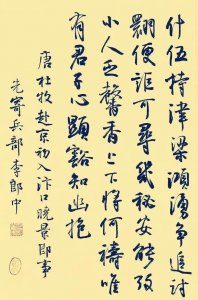 什伍持津梁澒湧争追討
翾便詎可尋幾秘安能考
小人乏馨香上下将何禱唯
有君子心顯豁知幽抱
唐杜牧赴京初入汴口晓景即事
先寄兵部李郎中